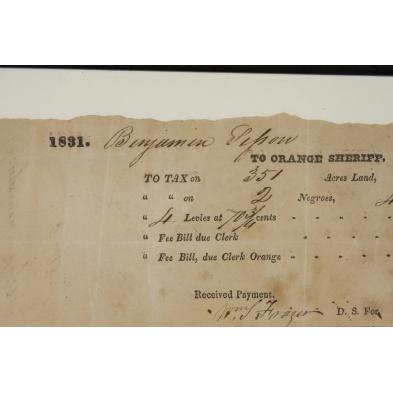 1831. Benjamin
TO ORANGE SHERIFF,
TO TAX on 351 Acres Land,
" " on 2 Negroes, 4
" 4 Levies at 70 3/4 cents - - -
" Fee Bill due Clerk - - - -
" Fee Bill, due Clerk Orange - - - -
Received Payment.
Wm S Frazer D. S. For